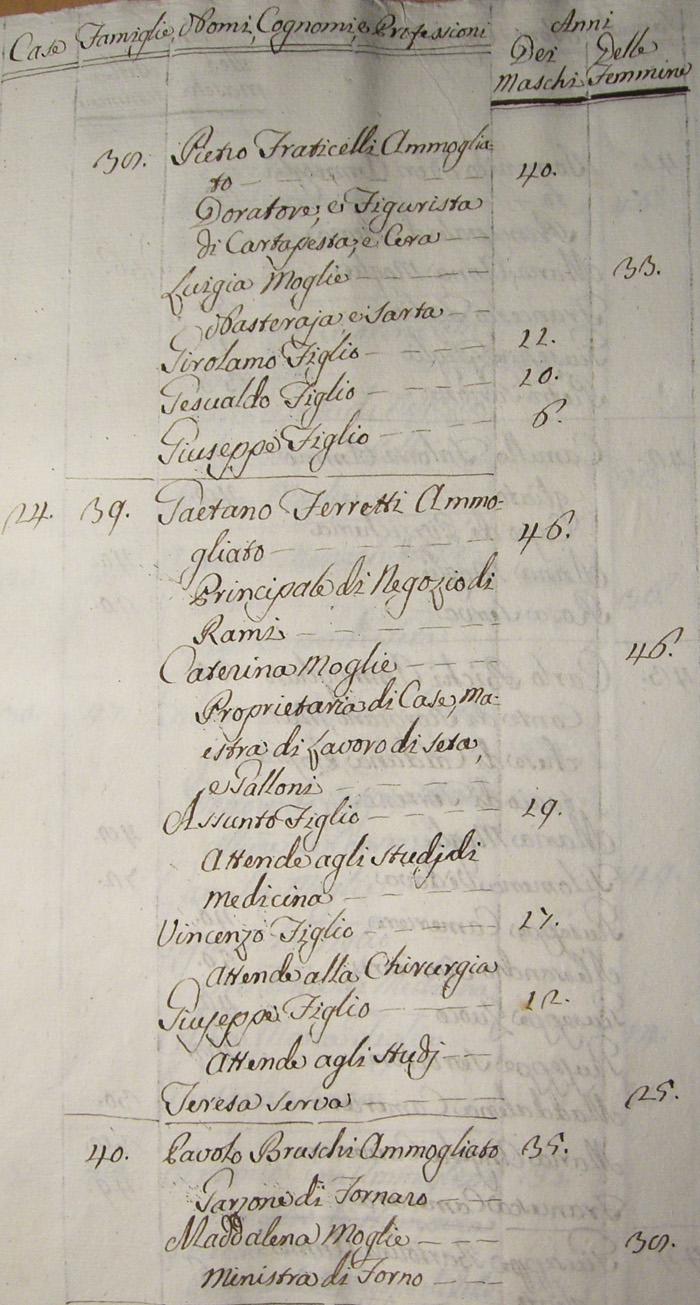 Case Famiglie, Nomi, Cognomi, e Professioni Anni
Dei Delle
Maschi Femmine
38. Pietro Fraticelli Ammoglia=
to 40.
Doratore, e Figurista
di Cartapesta, e Cera
Luigia Moglie 33.
Nasteraja e Sarta
Girolamo Figlio 12.
Gesualdo Figlio 10.
Giuseppe Figlio 6.
24. 39. Gaetano Ferretti Ammo=
gliato 46.
Principale di Negozio di
Rami
Caterina Moglie 46.
Proprietaria di Case, Ma=
estra di Lavoro di seta,
e Galloni
Assunto Figlio 19.
Attende agli studj di
medicina
Vincenzo Figlio 17.
Attende alla Chirurgia
Giuseppe Figlio 12.
Attende agli studj
Teresa serva 25.
40. Pavolo Bruschi Ammogliato 35.
Garzone di Fornaro
Maddalena Moglie 38.
Ministra di Forno